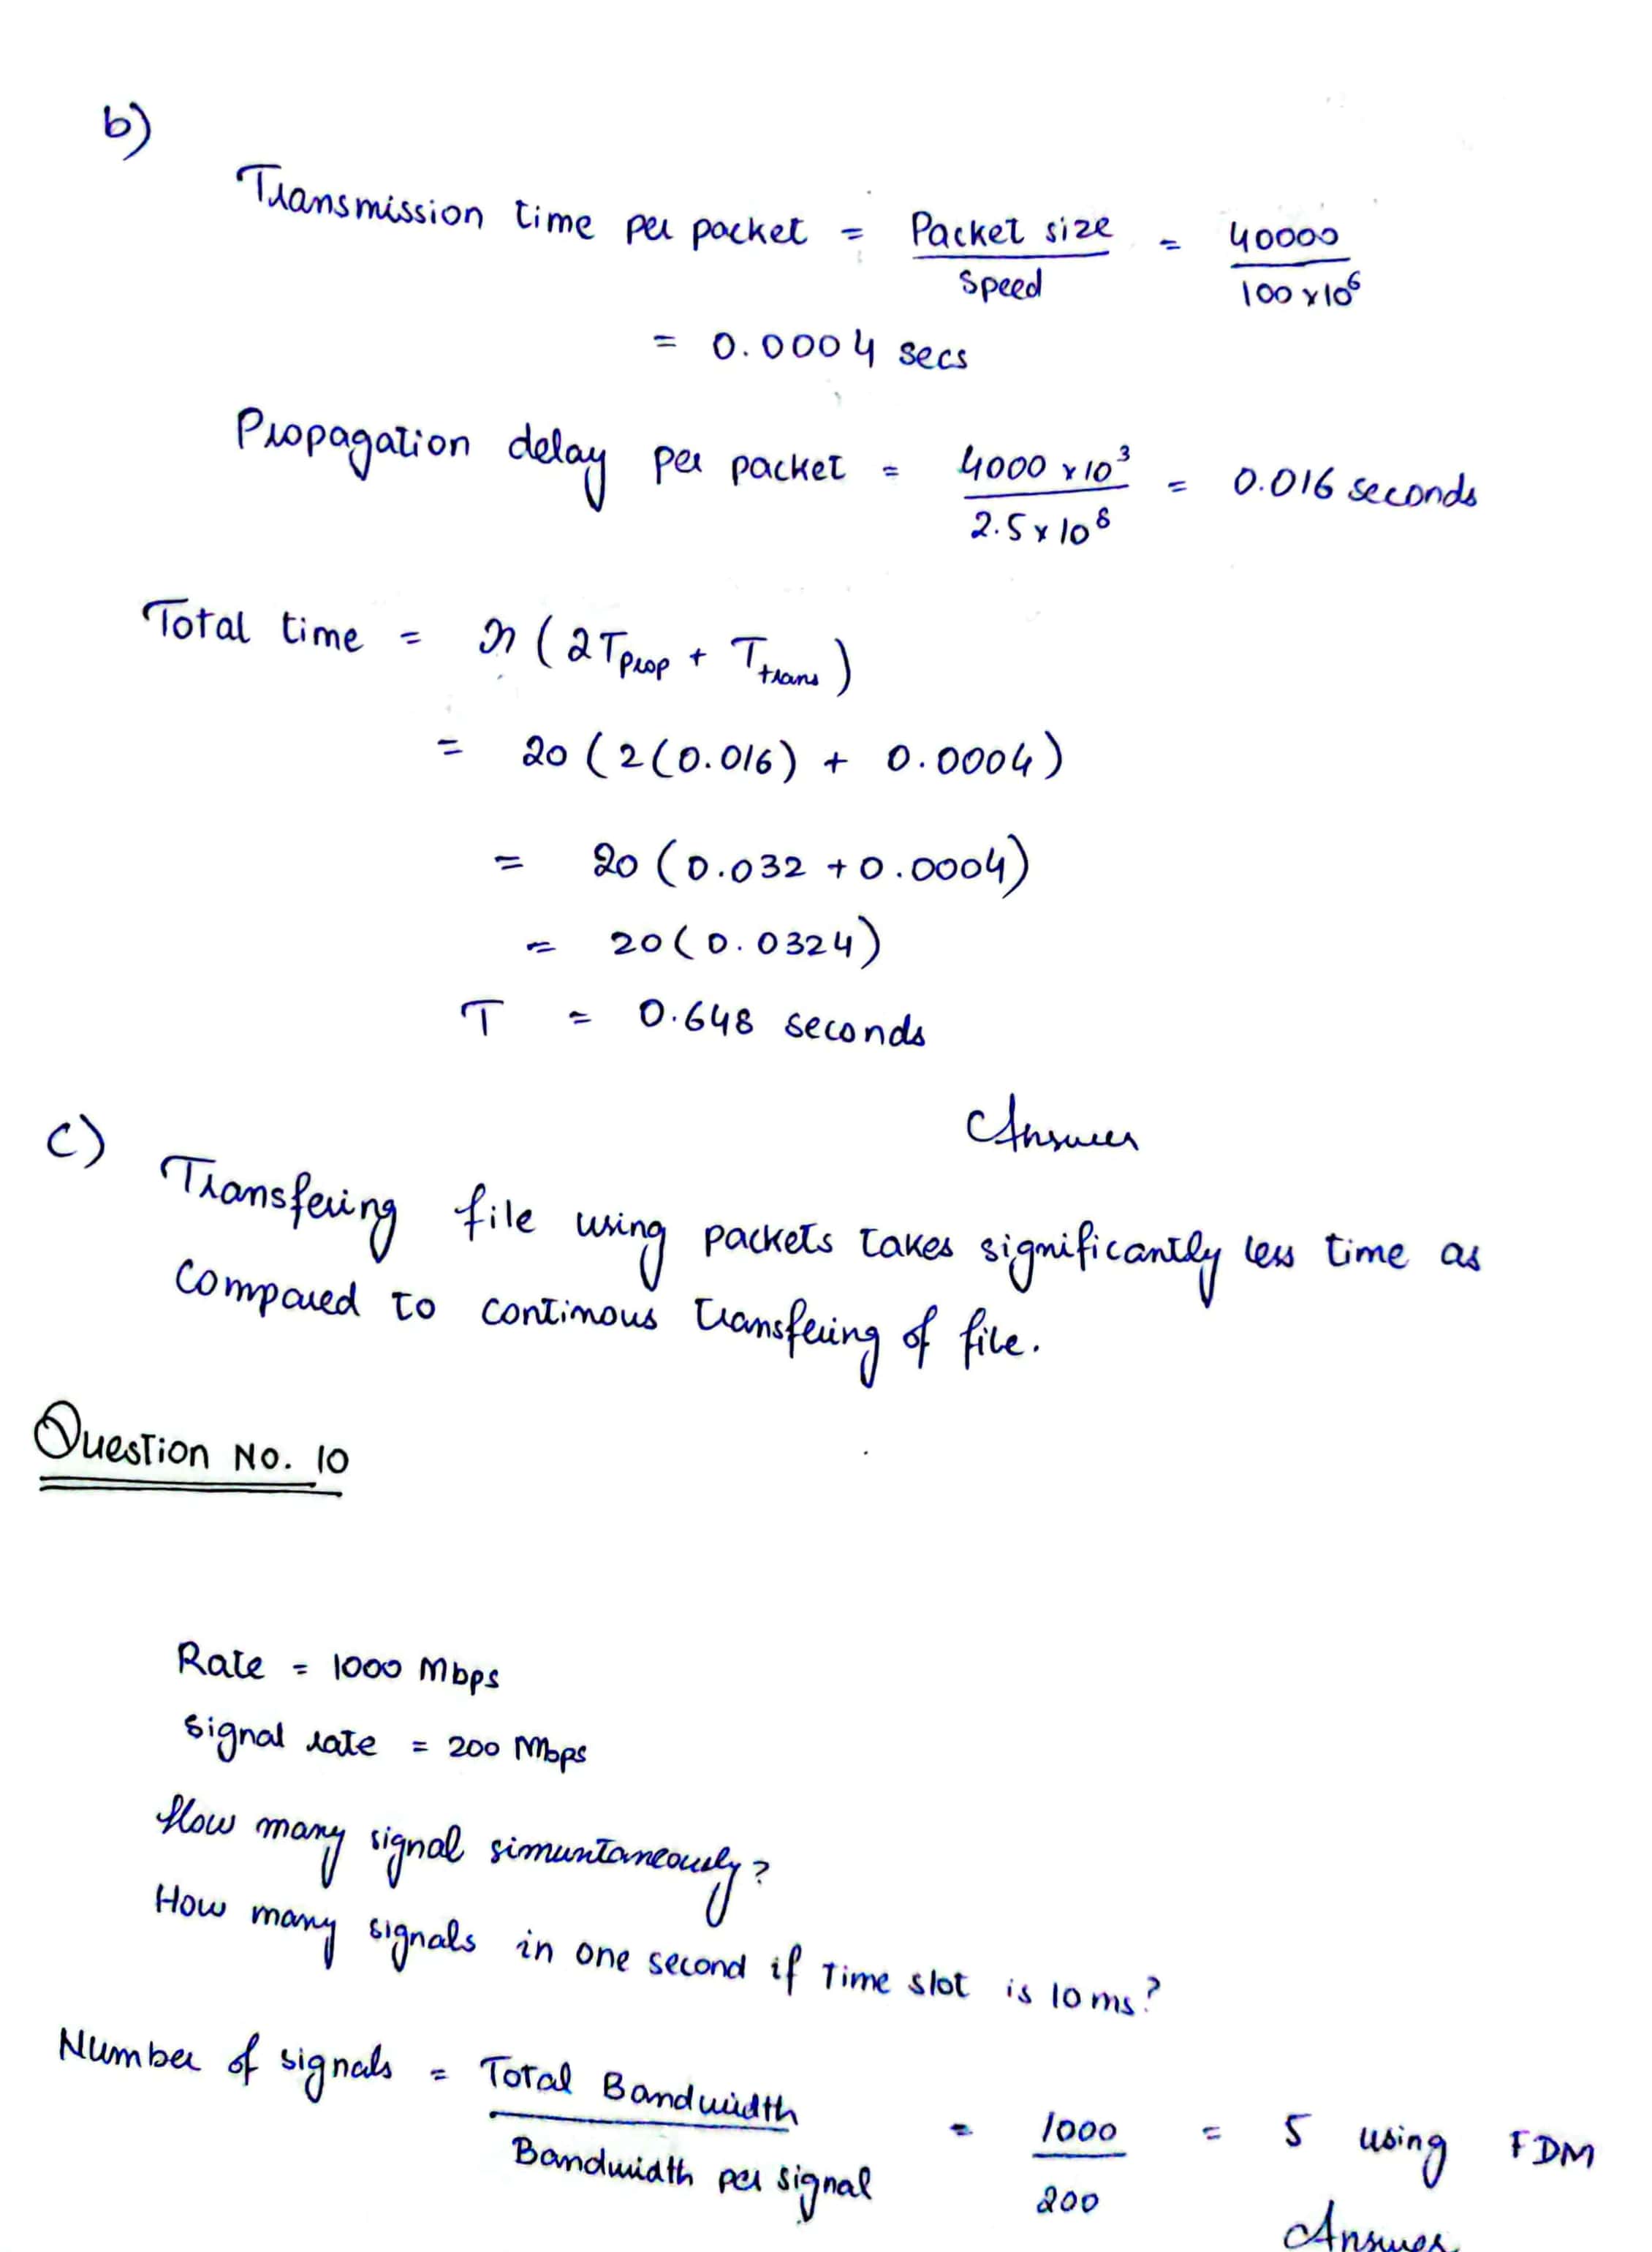 b)
Transmission time per packet = Packet size / Speed = 40000 / 100 × 10⁶
= 0.0004 secs
Propagation delay per packet = 4000 × 10³ / 2.5 × 10⁸ = 0.016 seconds
Total time = n ( 2Tprop + Ttrans )
= 20 ( 2(0.016) + 0.0004 )
= 20 ( 0.032 + 0.0004 )
= 20 ( 0.0324 )
T = 0.648 seconds
Answer
c) Transfering file using packets takes significantly less time as
compared to continous transfering of file.
Question No. 10
Rate = 1000 Mbps
Signal rate = 200 Mbps
How many signal simuntaneously?
How many signals in one second if Time slot is 10 ms?
Number of signals = Total Bandwidth / Bandwidth per signal = 1000 / 200 = 5 using FDM
Answer